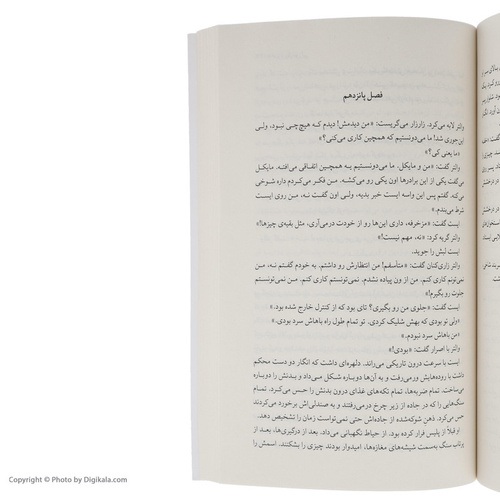 فصل پانزدهم
والتر لابه می‌کرد. زارزار می‌گریست: «من دیدمش! دیدم که هیچ‌چی نبود، ولی
این‌جوری شد! ما می‌دونستیم که همچین کاری می‌کنی؟»
«ما یعنی کی؟»
والتر گفت: «من و مایکل. ما می‌دونستیم یه همچین اتفاقی می‌افته. مایکل
می‌گفت یکی از این برادرها اون یکی رو می‌کشه. من فکر می‌کردم داره شوخی
می‌کنه. گفتم پس این واسه ایست خبر بدیه، ولی اون گفت نه. من روی ایست
شرط می‌بندم.»
ایست گفت: «مزخرفه. داری این‌ها رو از خودت درمی‌آری، مثل بقیه‌ی چیزها!»
والتر گریه کرد: «نه، مهم نیست!»
ایست لبش را جوید.
والتر زاری‌کنان گفت: «متأسفم! من انتظارش رو داشتم. به خودم گفتم نه، من
نمی‌تونم کاری کنم. من از ون پیاده نشدم. نمی‌تونستم کاری کنم. من نمی‌تونستم
جلوت رو بگیرم!»
ایست گفت: «جلوی من رو بگیری؟ تای بود که از کنترل خارج شده بود.»
«ولی تو بودی که بهش شلیک کردی. تو تمام طول راه باهاش سرد بودی.»
«من باهاش سرد نبودم.»
والتر با اصرار گفت: «بودی!»
ایست با سرعت درون تاریکی می‌راند. دلهره‌ای داشت که انگار دو دست محکم
داشت با روده‌هایش ورمی‌رفت و به آن‌ها دوباره شکل می‌داد و بدنش را دوباره
می‌ساخت. تمام ضربه‌ها، تمام تکه‌های غذای درون بدنش را حس می‌کرد. تمام
سنگ‌هایی را که در جاده از زیر چرخ درمی‌رفتند و به صندلی‌اش برخورد می‌کردند
حس می‌کرد. ذهن شوکه‌شده از جاده‌اش حتی نمی‌توانست زمان را تشخیص دهد.
او قبلاً از پلیس فرار کرده بود. از حیاط نگهبانی می‌داد. بعد از درگیری‌ها، بعد از
پرتاب سنگ به‌سمت شیشه‌های مغازه‌ها، امیدوار بودند چیزی را بشکنند. اسمش را
Copyright © Photo by Digikala.com